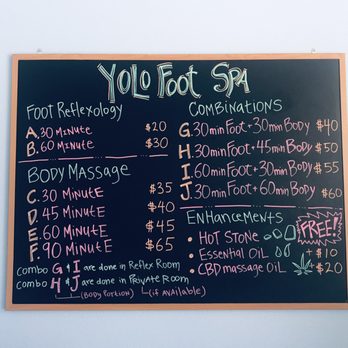 YOLO FOOT SPA
FOOT REFLEXOLOGY
A. 30 MINUTE $20
B. 60 MINUTE $30
BODY MASSAGE
C. 30 MINUTE $35
D. 45 MINUTE $40
E. 60 MINUTE $45
F. 90 MINUTE $65
COMBO G & I are done in Reflex Room
COMBO H & J are done in Private Room
(Body Portion) (if Available)
COMBINATIONS
G. 30 min Foot + 30 min Body $40
H. 30 min Foot + 45 min Body $50
I. 60 min Foot + 30 min Body $55
J. 30 min Foot + 60 min Body $60
ENHANCEMENTS
• HOT STONE FREE!
• Essential Oil + $10
• CBD massage Oil + $20